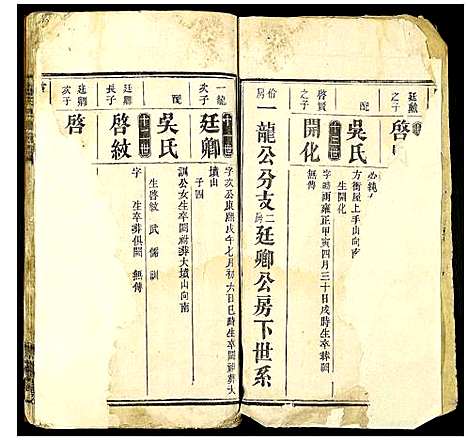 廷勳
之子
啓
配
吳氏
方衛屋上手山向南
生開化
啓賢
之子
十三世
開化
字 幼 雍正甲寅四月三十日戌時生卒葬闕
無傳
一龍公分支二房廷卿公房下世系
一龍
次子
廷卿
字次公康熙戊午七月初六日巳時生卒闕祔葬大
墳山
子四
配
吳氏
訓公女生卒闕祔葬大墳山向南
生啓紋 武 儒 訓
廷卿
長子
十二世
啓紋
字 生卒葬俱闕 無傳
廷卿
次子
啓